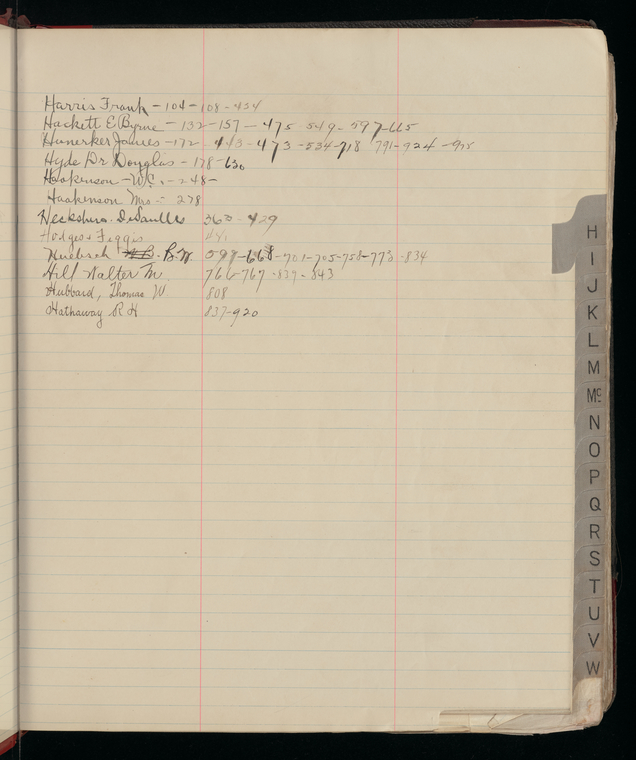 Harris Frank - 104 - 108 - 454
Hackett E Byrne - 132 - 157 - 475 549 - 597 - 665
Hunerker James - 172 443 - 473 - 534 - 718 791 - 924 - 975
Hyde Dr Douglas - 178 - 630
Haakenson - W.C. - 248 -
Haakenson Mrs - 278
Heckshur DeSaulles 363 - 429
Hodges & Figgis 441
B.W. 597 - 668 - 701 - 705 - 758 - 773 - 834
Hill Walter M. 766 - 767 - 837 - 843
Hubbard, Thomas W 808
Hathaway R H 837 - 920
H
I
J
K
L
M
Mc
N
O
P
Q
R
S
T
U
V
W